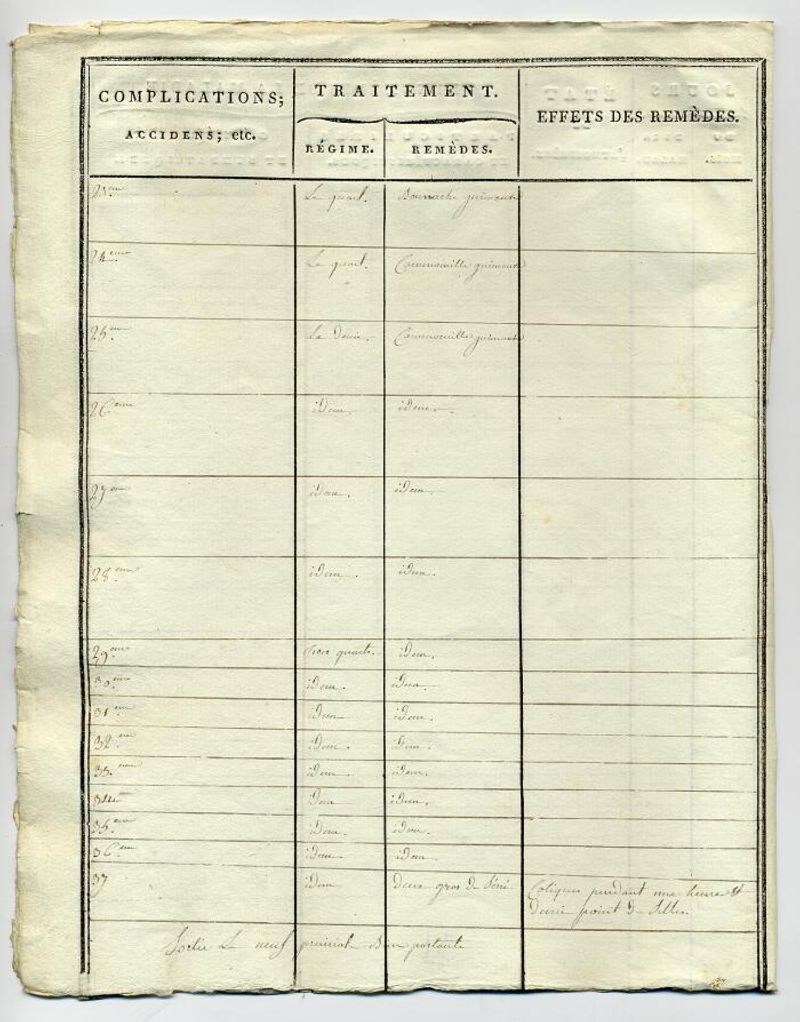 COMPLICATIONS;
ACCIDENS; etc.
TRAITEMENT.
RÉGIME.
REMÈDES.
EFFETS DES REMÈDES.
23eme Le quart. Bourrache guimauve
24eme Le quart. Cammomille guimauve
25eme. La Demie. Cammomille guimauve
26eme idem. idem.
27eme idem. idem.
28eme. idem. idem.
29eme. Trois quarts. idem.
30.eme idem. idem.
31eme. idem idem.
32eme. idem. idem.
33.eme idem idem.
34eme idem idem.
35eme. idem. idem.
36eme. idem. idem.
37 idem Deux gros De Séné Coliques pendant une heure et
Demie point De Selles.
Sortie Le neuf prairial Bien portante